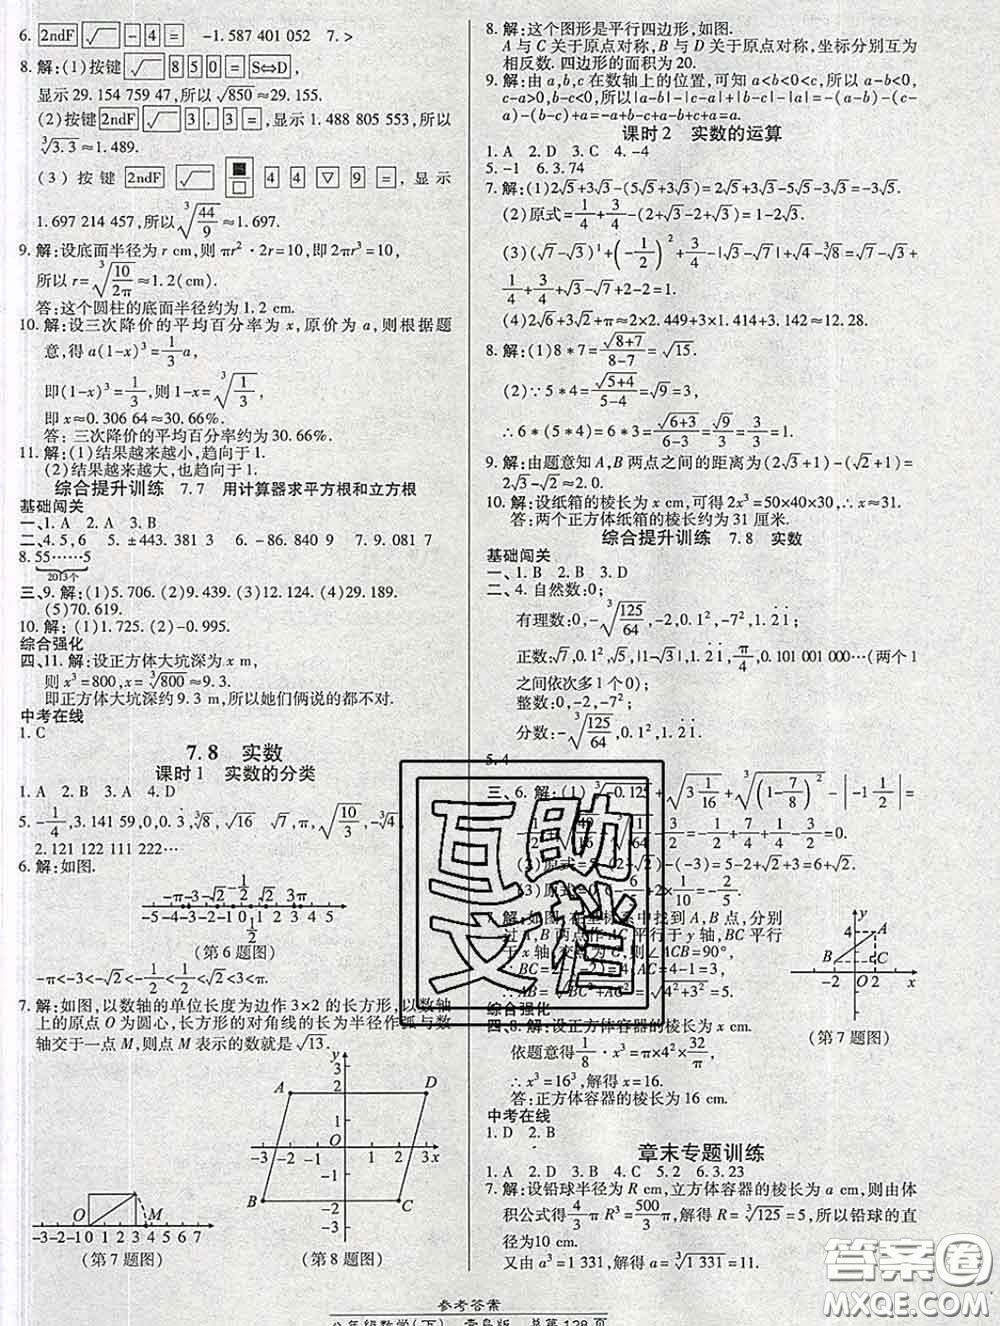 6. 2ndF √ - 4 = -1.587 401 052 7. >
8. 解:(1)按键 √ 8 5 0 = S⇔D,
显示 29.154 759 47,所以√850≈29.155.
(2)按键 2ndF √ 3 . 3 = ,显示 1.488 805 553,所以
∛3.3≈1.489.
(3)按键 2ndF √ ■/□ 4 4 ▽ 9 = ,显示
1.697 214 457,所以∛(44/9)≈1.697.
9. 解:设底面半径为 r cm,则 πr²·2r=10,即 2πr³=10,
所以 r=∛(10/2π)≈1.2(cm).
答:这个圆柱的底面半径约为 1.2 cm.
10. 解:设三次降价的平均百分率为 x,原价为 a,则根据题
意,得 a(1-x)³=1/3 a,
即(1-x)³=1/3,则 1-x=∛(1/3),
即 x≈0.306 64≈30.66%.
答:三次降价的平均百分率约为 30.66%.
11. 解:(1)结果越来越小,趋向于 1.
(2)结果越来越大,也趋向于 1.
综合提升训练 7.7 用计算器求平方根和立方根
基础闯关
一、1. A 2. A 3. B
二、4. 5,6 5. ±443.381 3 6. -86.840 9 7. 9.081 7
8. 55……5
2013个
三、9. 解:(1)5.706. (2)9.439. (3)12.124. (4)29.189.
(5)70.619.
10. 解:(1)1.725. (2)-0.995.
综合强化
四、11. 解:设正方体大坑深为 x m,
则 x³=800,x=∛800≈9.3.
即正方体大坑深约 9.3 m,所以她们俩说的都不对.
中考在线
1. C
7.8 实数
课时 1 实数的分类
1. A 2. A 3. A 4. D
5. -1/4,3.141 59,0,0.3̇,∛8,√16 √7,π,√(10/3),-∛4,
2.121 122 111 222…
6. 解:如图.
-π-3-√2 -1/2 √2 3π
-5-4-3-2-1 0 1 2 3 4 5
1/2
(第 6 题图)
-π<-3<-√2<-1/2<1/2<√2<3<π.
7. 解:如图,以数轴的单位长度为边作 3×2 的长方形,以数轴
上的原点 O 为圆心,长方形的对角线的长为半径作弧与数
轴交于一点 M,则点 M 表示的数就是√13.
O M
-3-2-1 0 1 2 3 4 5 6 7 8
(第 7 题图)
y
A 2 D
1
O
-3 -2 -1 1 2 3 x
-1
B -2 C
-3
(第 8 题图)
8. 解:这个图形是平行四边形,如图.
A 与 C 关于原点对称,B 与 D 关于原点对称,坐标分别互为
相反数. 四边形的面积为 20.
9. 解:由 a,b,c 在数轴上的位置,可知 a<b<0<c,所以 a-b<0,
c-a>0,b-c<0,所以|a-b|-|c-a|+|b-c|-|a|=-(a-b)-(c-
a)-(b-c)+a=-a+b-c+a-b+c+a=a.
课时 2 实数的运算
1. A 2. D 3. C 4. -4
5. -1 6. 3.74
7. 解:(1)2√5+3√3-(5√5+3√3)=2√5+3√3-5√5-3√3=-3√5.
(2)原式=1/4+3/4-(2+√3-2+√3)=1-2√3.
(3)(√7-√3)¹+(-1/2)²+3/4-|√3-√7|+√4-∛8=√7-√3+
1/4+3/4+√3-√7+2-2=1.
(4)2√6+3√2+π≈2×2.449+3×1.414+3.142≈12.28.
8. 解:(1)8*7=√(8+7)/(8-7)=√15.
(2)∵5*4=√(5+4)/(5-4)=√9=3,
∴6*(5*4)=6*3=√(6+3)/(6-3)=√9/3=3/3=1.
9. 解:由题意知 A,B 两点之间的距离为(2√3+1)-(√2+1)=2√3-
√2≈2.0.
10. 解:设纸箱的棱长为 x cm,可得 2x³=50×40×30,x≈31.
答:两个正方体纸箱的棱长约为 31 厘米.
综合提升训练 7.8 实数
基础闯关
一、1. B 2. B 3. D
二、4. 自然数:0;
有理数:0,-∛(125/64),0.1²,-7²,1.2̇1̇;
正数:√7,0.1²,√5,|1-√3|,1.2̇1̇,π/4,0.101 001 000…(两个 1
之间依次多 1 个 0);
整数:0,-2,-7²;
分数:-∛(125/64),0.1²,1.2̇1̇
5. 4
三、6. 解:(1)∛-0.125+√(3 1/16)+∛((1-7/8)²)-|-1 1/2|=
∛(1/64)
=-1/2+7/4+1/4-3/2=0.
(2)原式=5-(2-√2)-(-3)=5-2+√2+3=√2+6.
(3)原式=0.6-6/2+1/10=-2.
7. 解:如图,在坐标系中找到 A,B 点,分别
过 A,B 两点作 AC 平行于 y 轴,BC 平行
于 x 轴,交点为 C,则∠ACB=90°,
∴AB=√(BC²+AC²)=√(4²+3²)=5.
y
4 A
B C
-2 O 2 x
(第 7 题图)
综合强化
四、8. 解:设正方体容器的棱长为 x cm.
依题意得 1/8·x³=π×4²×32/π,
∴x³=16³,解得 x=16.
答:正方体容器的棱长为 16 cm.
中考在线
1. D 2. B
章末专题训练
1. A 2. D 3. B 4. C 5. 2 6. 3.23
7. 解:设铅球半径为 R cm,立方体容器的棱长为 a cm,则由体
积公式得 4/3 πR³=500/3 π,解得 R=∛125=5,所以铅球的直
径为10 cm.
又由 a³=1 331,解得 a=∛1 331=11.
互助
文档
答案圈
MXQE.COM
参考答案
八年级数学(下) 青岛版 总第 128 页